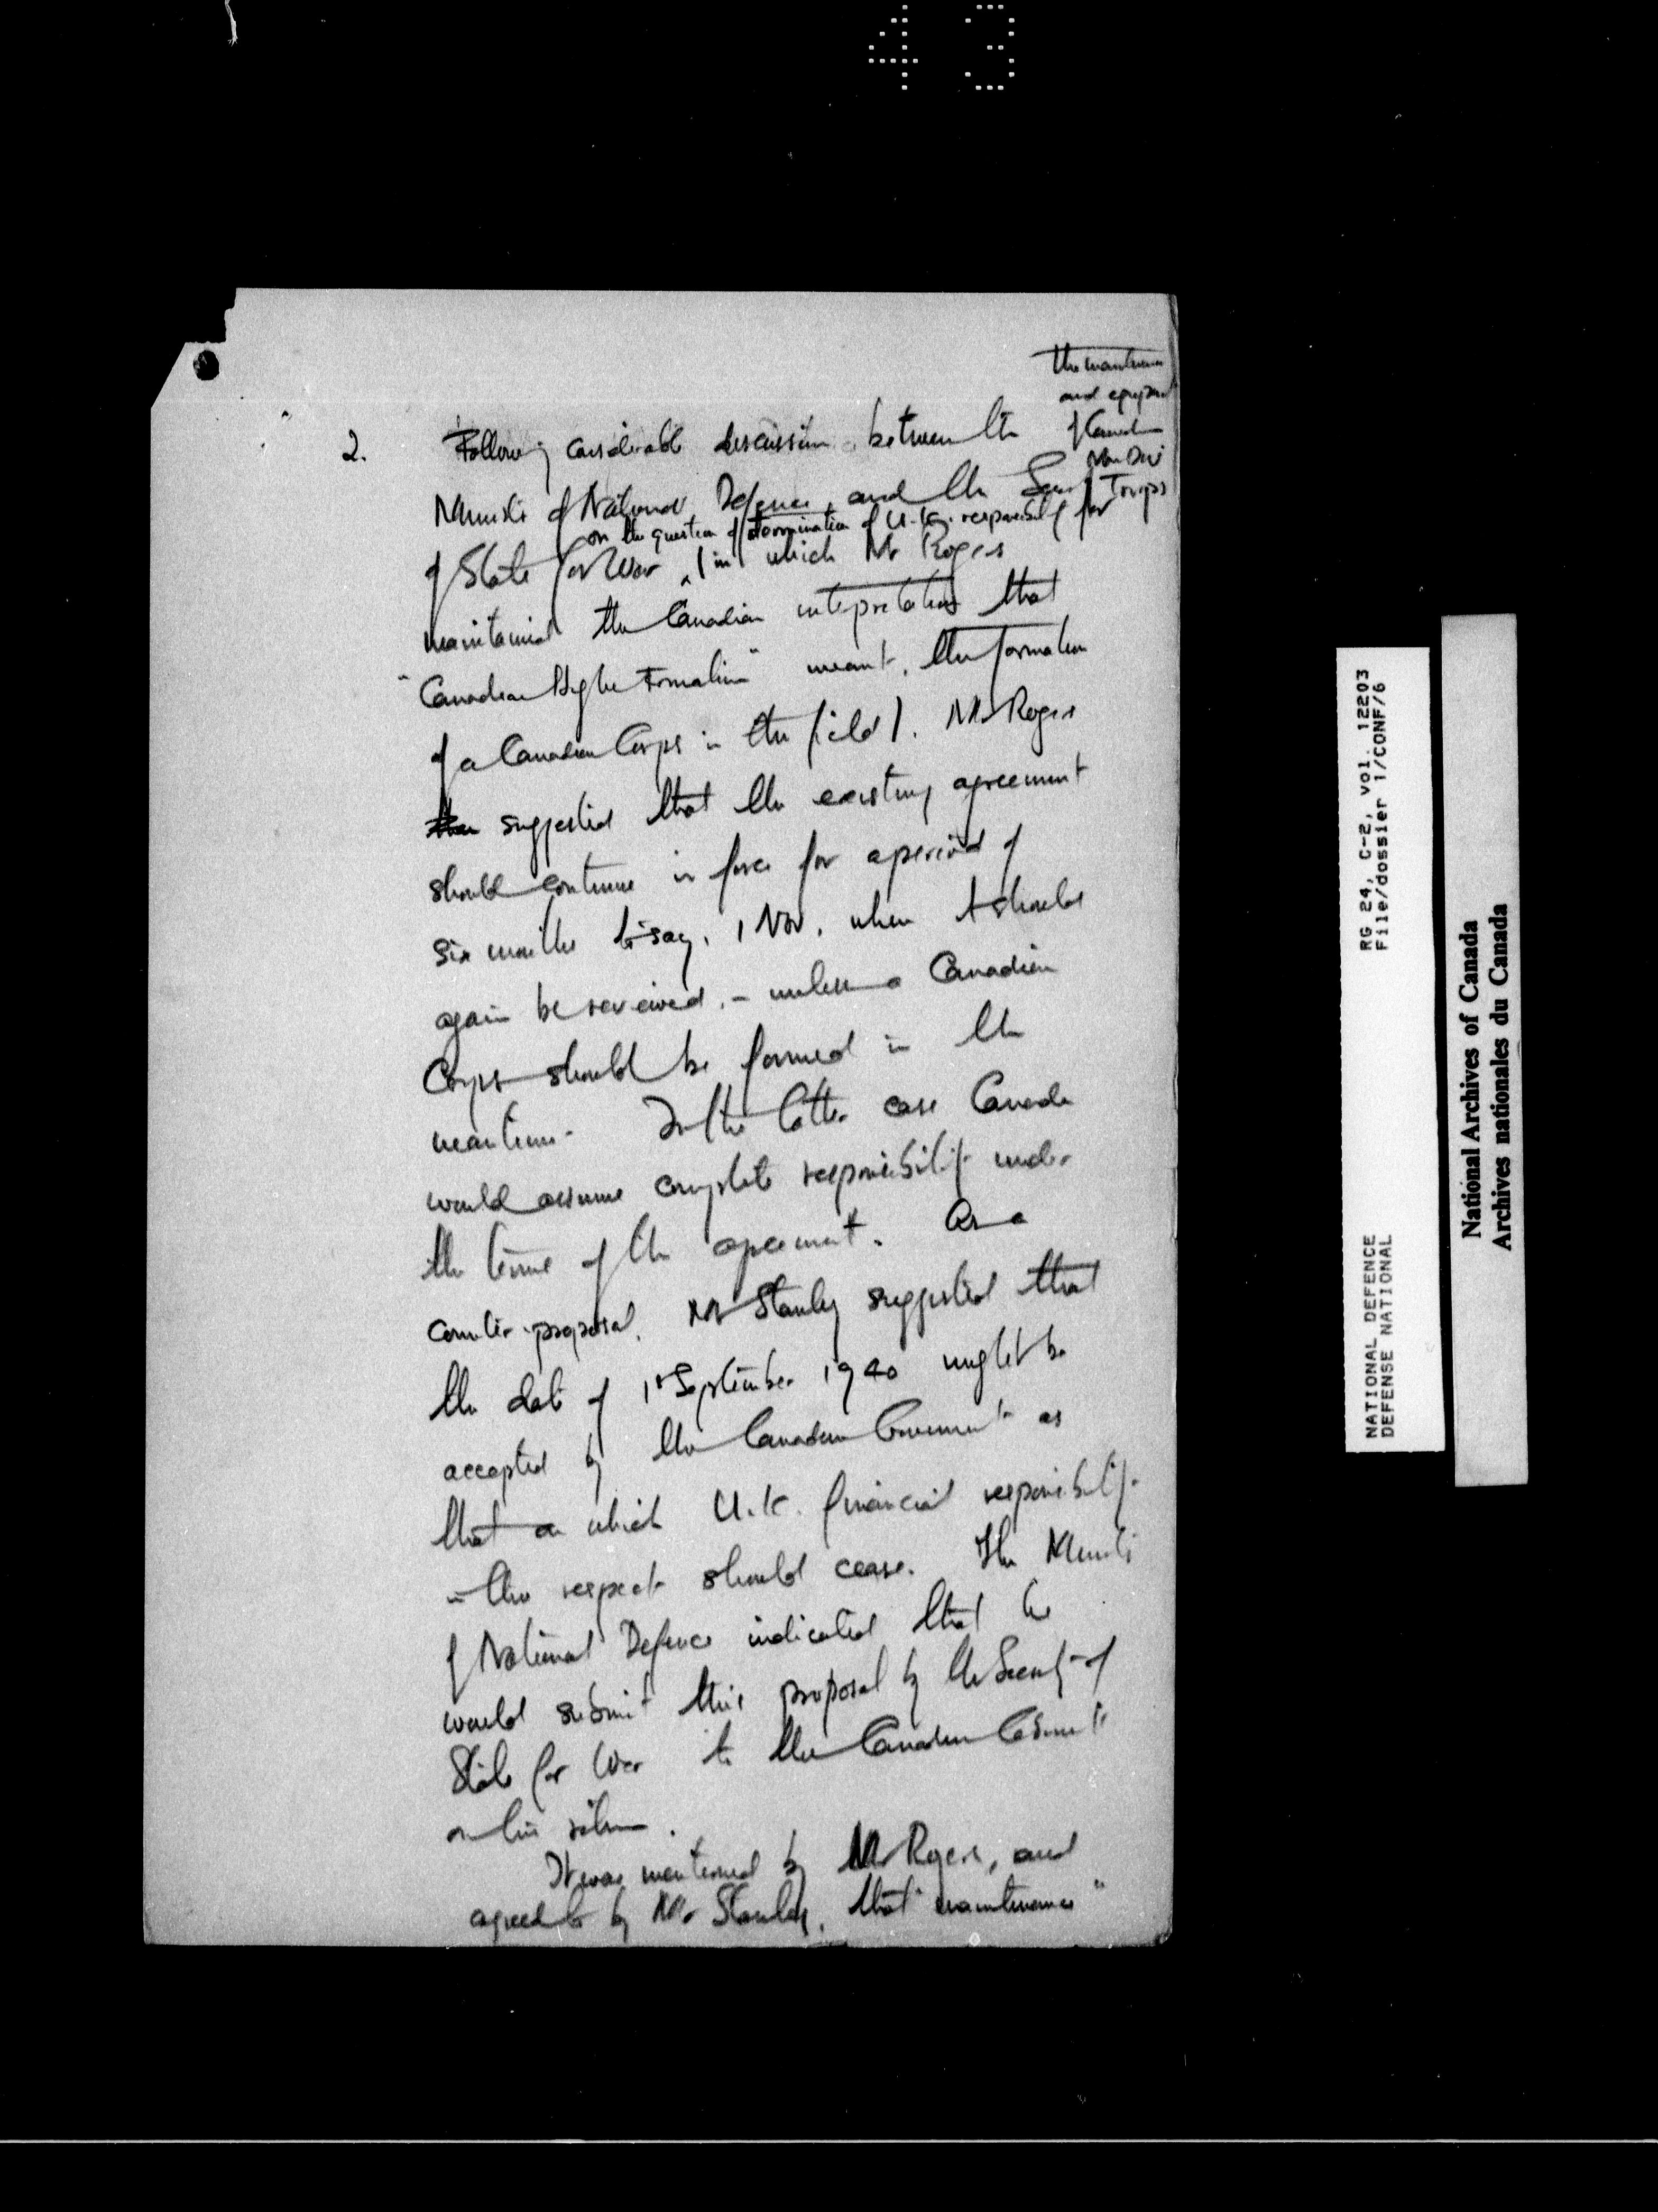 43
the maintenance
and equipment
of Canadian
Non Div
Troops
2. Following considerable discussion between the
Minister of National Defence, and the Secy
on the question of termination of U.K. responsibility for
of State for War, (in which Mr Rogers
maintained the Canadian interpretation that
"Canadian Higher Formation" meant, the formation
of a Canadian Corps in the field). Mr Rogers
then suggested that the existing agreement
should continue in force for a period of
six months to say, 1 Nov. when it should
again be reviewed, - unless a Canadian
Corps should be formed in the
meantime. In the latter case Canada
would assume complete responsibility under
the terms of the agreement. As a
counter-proposal, Mr Stanley suggested that
the date of 1st September 1940 might be
accepted by the Canadian Government as
that on which U.K. financial responsibility
in this respect should cease. The Minister
of National Defence indicated that he
would submit this proposal by the Secretary of
State for War to the Canadian Cabinet
on his return.
It was mentioned by Mr Rogers, and
agreed to by Mr Stanley, that "maintenance"
NATIONAL DEFENCE RG 24, C-2, vol. 12203
DEFENSE NATIONAL File/dossier 1/CONF/6
National Archives of Canada
Archives nationales du Canada